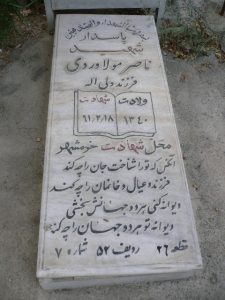 پاسدار
شهید
ناصر مولاوردی
فرزند ولی اله
ولادت شهادت
۱۳۴۰ ۶۱/۲/۱۸
محل شهادت خرمشهر
آنکس که تو را شناخت جان را چه کند
فرزند و عیال و خانمان را چه کند
دیوانه کنی هر دو جهانش بخشی
دیوانه تو هر دو جهان را چه کند
قطعه ۲۶ ردیف ۵۲ شماره ۷